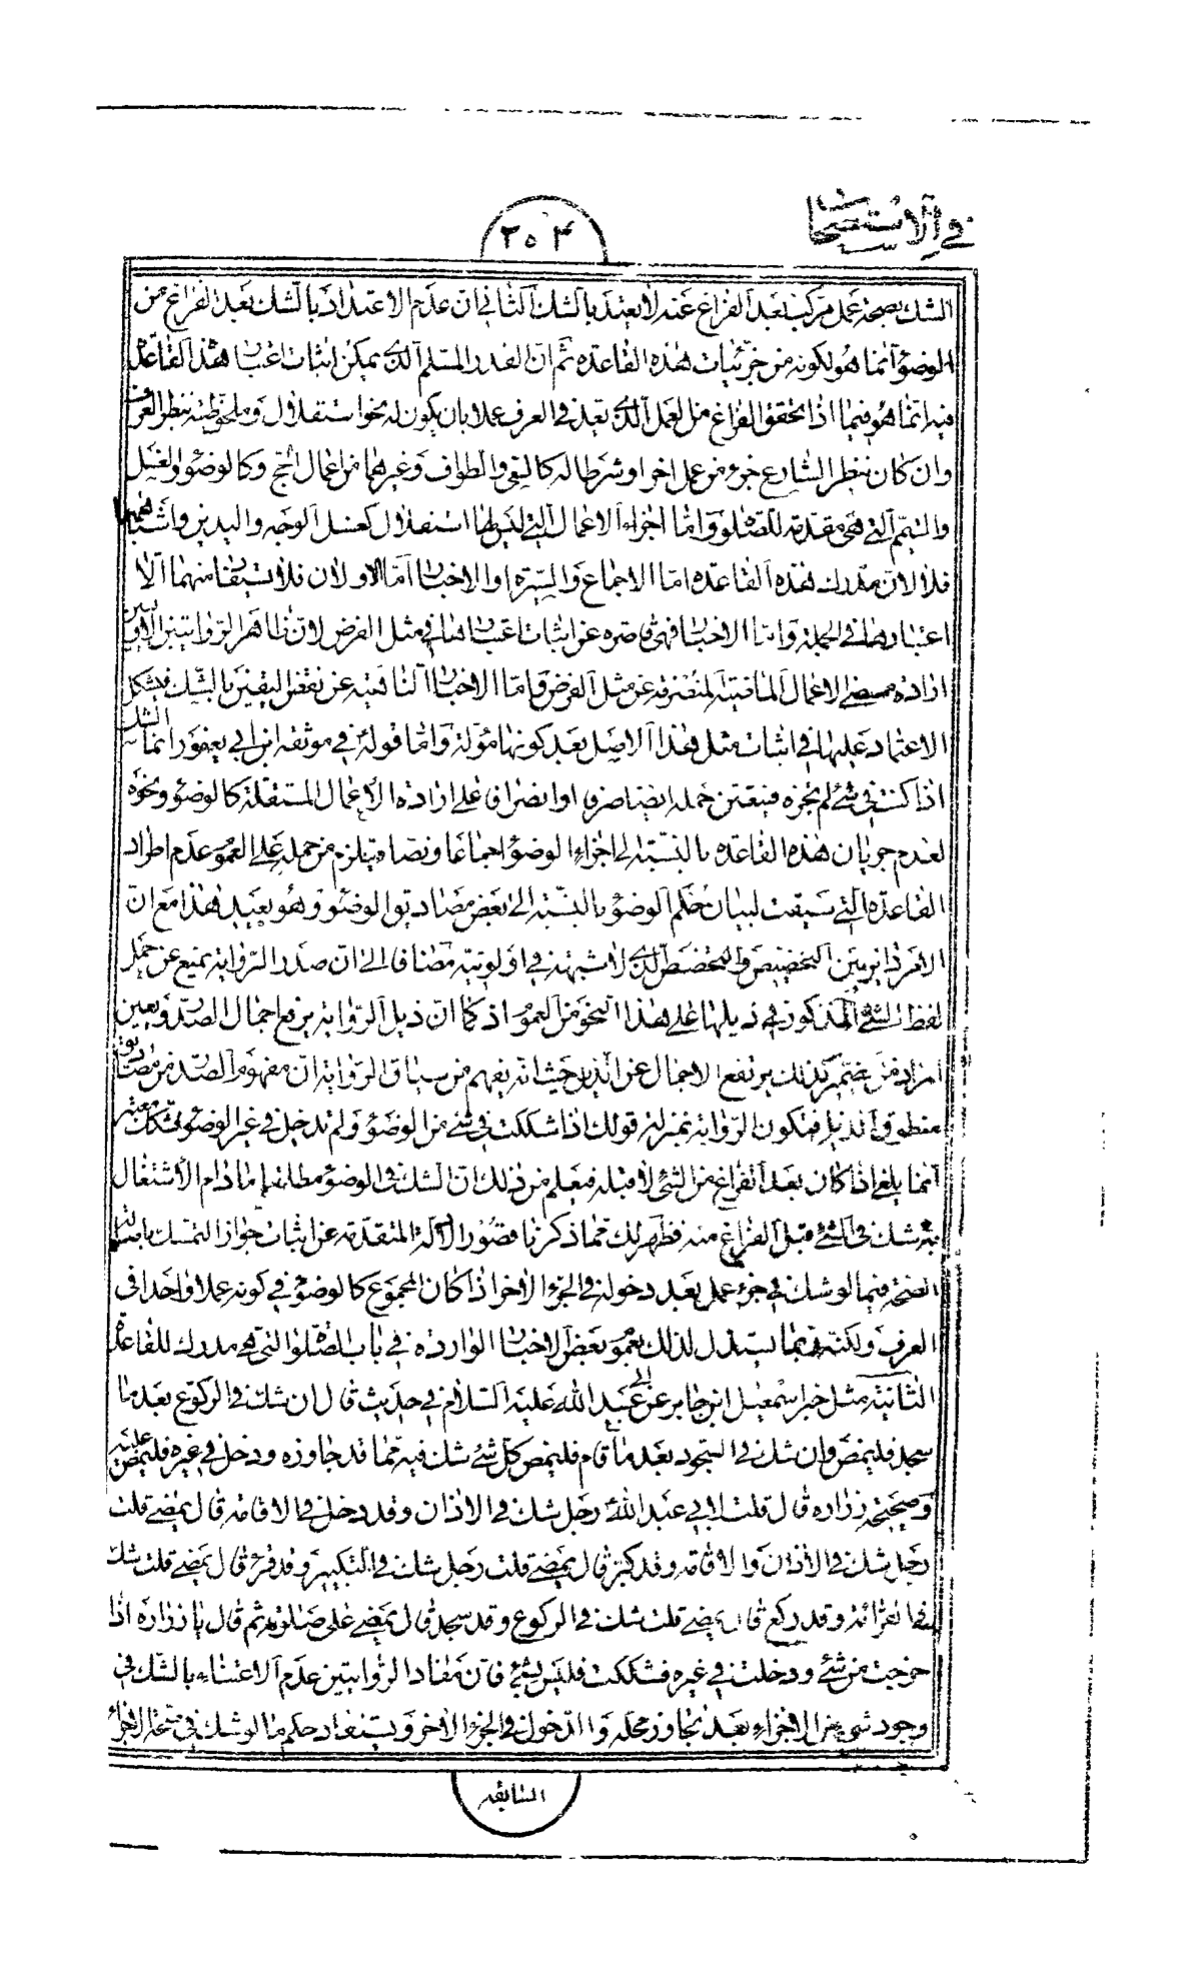 في الاستصحاب
٣٥٤
الشك بصحة عمل مركب بعد الفراغ عنه لا يعتد بالشك الثاني ان عدم الاعتداد بالشك بعد الفراغ من
الوضوء انما هو لكونه من جزئيات هذه القاعدة ثم ان القدر المسلم الذى يمكن اثبات اعتبار هذا القاعدة
فيه انما هو فيما اذا تحقق الفراغ من العمل الذى يعد في العرف عملا بان يكون له نحو استقلال وملحوظية بنظر العرف
وان كان بنظر الشارع جزء من عمل اخر او شرطا له كالسعى والطواف وغيرهما من اعمال الحج وكالوضوء والغسل
والتيمم التي هى مقدمة للصلوة واما اجزاء الاعمال التي ليس لها استقلال كغسل الوجه واليدين واشباههما
فلا لان مدرك هذه القاعدة اما الاجماع والسيرة او الاخبار اما الاولان فلا يستفاد منهما الا
اعتبارها في الجملة واما الاخبار فهى قاصرة عن اثبات اعتبارها في مثل الفرض لان ظاهر الروايتين الاوليين
ارادة مضى الاعمال الماضية المنصرفة عن مثل الفرض واما الاخبار الناهية عن نقض اليقين بالشك فيشكل
الاعتماد عليها في اثبات مثل هذا الاصل بعد كونها مؤلة واما قوله في موثقة ابن ابي يعفور انما الشك
اذا كنت في شئ لم تجزه فيتعين حمله ايضا صرفا او انصرافا على ارادة الاعمال المستقلة كالوضوء ونحوه
لعدم جريان هذه القاعدة بالنسبة الى اجزاء الوضوء اجماعا ونصا فيلزم من حمله على العموم عدم اطراد
القاعدة التي سيقت لبيان حكم الوضوء بالنسبة الى بعض مصاديق الوضوء وهو بعيد هذا مع ان
الامر دائر بين التخصيص والتخصص الذى لا شبهة في اولويته مضافا الى ان صدر الرواية يمنع عن حمل
لفظ الشئ المذكور في ذيلها على هذا النحو من العموم اذ كما ان ذيل الرواية يرفع اجمال الصدر ويعين
مرجع ضميره كذلك يرتفع الاجمال عن الذيل حيث انه يفهم من سياق الرواية ان مفهوم الصدر من مصاديق
منطوق الذيل فتكون الرواية بمنزلة قولك اذا شككت في شئ من الوضوء ولم تدخل في غير الوضوء فشكك معتبر
انما يلغى اذا كان بعد الفراغ من الشئ لا قبله فيعلم من ذلك ان الشك في الوضوء مطلقا ما دام الاشتغال
به شك في الشئ قبل الفراغ منه فظهر لك مما ذكرنا قصور الادلة المتقدمة عن اثبات جواز التمسك باصالة
الصحة فيما لو شك في جزء عمل بعد دخوله في الجزء الاخر اذا كان المجموع كالوضوء في كونه عملا واحدا في
العرف ولكنه ربما يستدل لذلك بعموم بعض الاخبار الواردة في باب الصلوة التي هى مدرك للقاعدة
الثانية مثل خبر اسمعيل ابن جابر عن ابي عبد الله عليه السلام في حديث قال ان شك في الركوع بعد ما
سجد فليمض وان شك في السجود بعد ما قام فليمض كل شئ شك فيه مما قد جاوزه ودخل في غيره فليمض عليه
وصحيحة زرارة قال قلت لابي عبد الله رجل شك في الاذان وقد دخل في الاقامة قال يمضى قلت
رجل شك في الاذان والاقامة وقد كبر قال يمضى قلت رجل شك في التكبير وقد قرء قال يمضى قلت شك
في القرائة وقد ركع قال يمضى قلت شك في الركوع وقد سجد قال يمضى على صلوته ثم قال يا زرارة اذا
خرجت من شئ ودخلت في غيره فشككت فليس بشئ فان مفاد الروايتين عدم الاعتناء بالشك في
وجود شئ من الاجزاء بعد تجاوز محله والدخول في الجزء الاخر ويستفاد حكم ما لو شك في صحة الاجزاء
السابقة